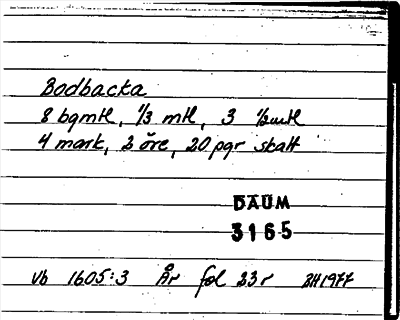 Bodbacka
8 bgmtl, 1/3 mtl, 3 1/2mtl
4 mark, 2 öre, 20 pgr skatt
DAUM
3165
Vb 1605:3 År fol 23r BH1977